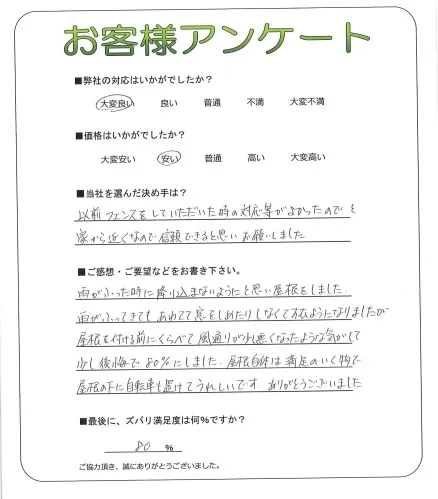 お客様アンケート
■弊社の対応はいかがでしたか？
大変良い 良い 普通 不満 大変不満
■価格はいかがでしたか？
大変安い 安い 普通 高い 大変高い
■当社を選んだ決め手は？
以前フェンスをしていただいた時の対応等がよかったのでと
家から近くなので信頼できると思いお願いしました
■ご感想・ご要望などをお書き下さい。
雨がふった時に降り込まないようにと思い屋根をしました。
雨がふってきてもあわてて窓をしめたりしなくて
なりましたが
屋根を付ける前にくらべて風通りが少し悪くなったような気がして
少し後悔で80%にしました。屋根自体は満足のいく物で
屋根の下に自転車も置けてうれしいです。ありがとうございました
■最後に、ズバリ満足度は何%ですか？
80 %
ご協力頂き、誠にありがとうございました。